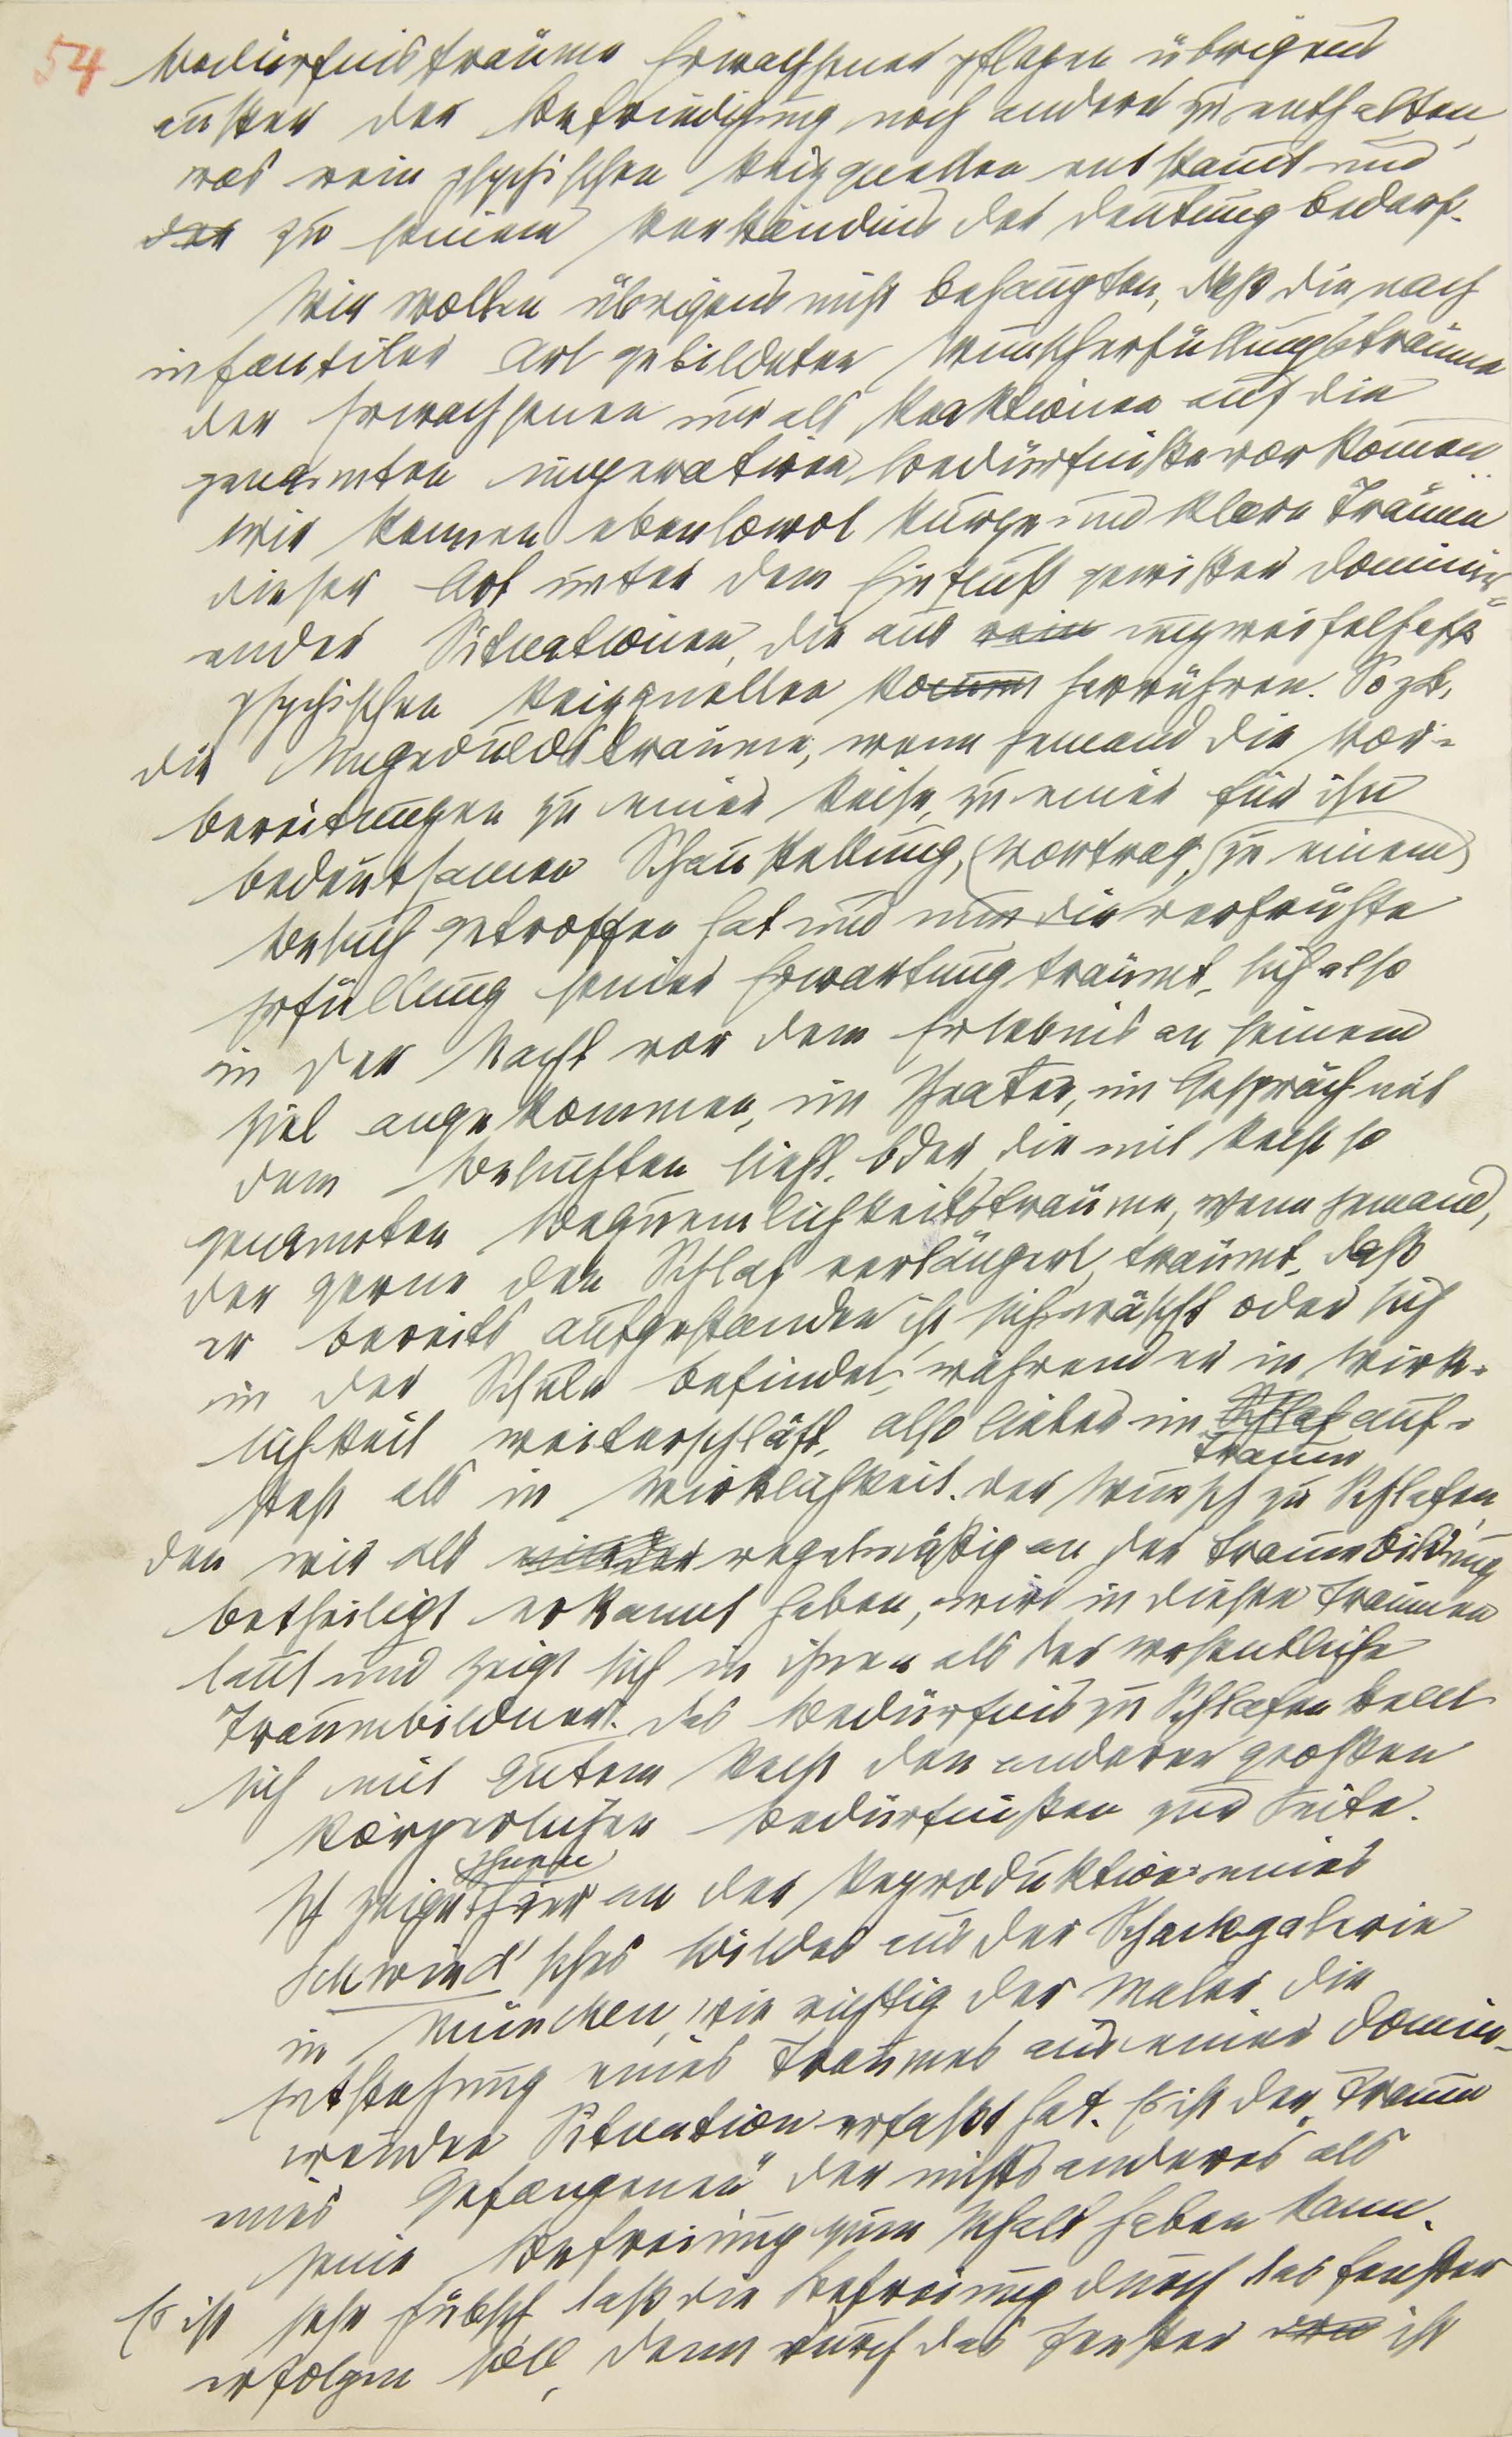 54
Bedürfnisträume Erwachsener pflegen übrigens
außer der Befriedigung noch anderes zu enthalten,
was rein psychischen Reizquellen entstamt und
der zu seinem Verständnis der Deutung bedarf.
Wir wollen übrigens nicht behaupten, daß die nach
infantiler Art gebildeten Wunscherfüllungsträume
der Erwachsenen nur als Reaktionen auf die
genannten imperativen Bedürfniße vorkommen.
Wir kennen ebensowol kurze und klare Träume
dieser Art unter dem Einfluß gewißer dominir-
ender Situationen, die aus rein unzweifelhaft
psychischen Reizquellen herrühren. So z.B.
die Ungeduldsträume, wenn jemand die Vor-
bereitungen zu einer Reise, zu einer für ihn
bedeutsamen Schaustellung, (Vortrag,) zu einem
Besuch getroffen hat und nun die verfrühte
Erfüllung seiner Erwartung träumt, sich also
in der Nacht vor dem Erlebnis an seinem
Ziel angekommen, im Theater, im Gespräch mit
dem Besuchten sieht. Oder die mit Recht so
genannten Bequemlichkeitsträume, wenn jemand,
der gerne den Schlaf verlängert, träumt, daß
er bereits aufgestanden ist, sich wäscht oder sich
in der Schule befindet, während er in Wirk-
lichkeit weiterschläft, also lieber im Schlaf auf-
Traum
steht als in Wirklichkeit. Der Wunsch zu schlafen,
den wir als regelmäßig an der Traumbildung
betheiligt erkannt haben, wird in diesen Träumen
laut und zeigt sich in ihnen als der wesentliche
Traumbildner. Das Bedürfnis zu schlafen stellt
sich mit gutem Recht den anderen großen
körperlichen Bedürfnißen zur Seite.
Ihnen
Ich zeige hier an der Reproduktion eines
Schwind'schen Bildes aus der Schackgalerie
in München, wie richtig der Maler die
Entstehung eines Traumes aus einer domin-
irenden Situation erfaßt hat. Es ist der „Traum
eines Gefangenen" der nichts anderes als
seine Befreiung zum Inhalt haben kann.
Es ist sehr hübsch, daß die Befreiung durch das Fenster
erfolgen soll, denn durch das Fenster ist